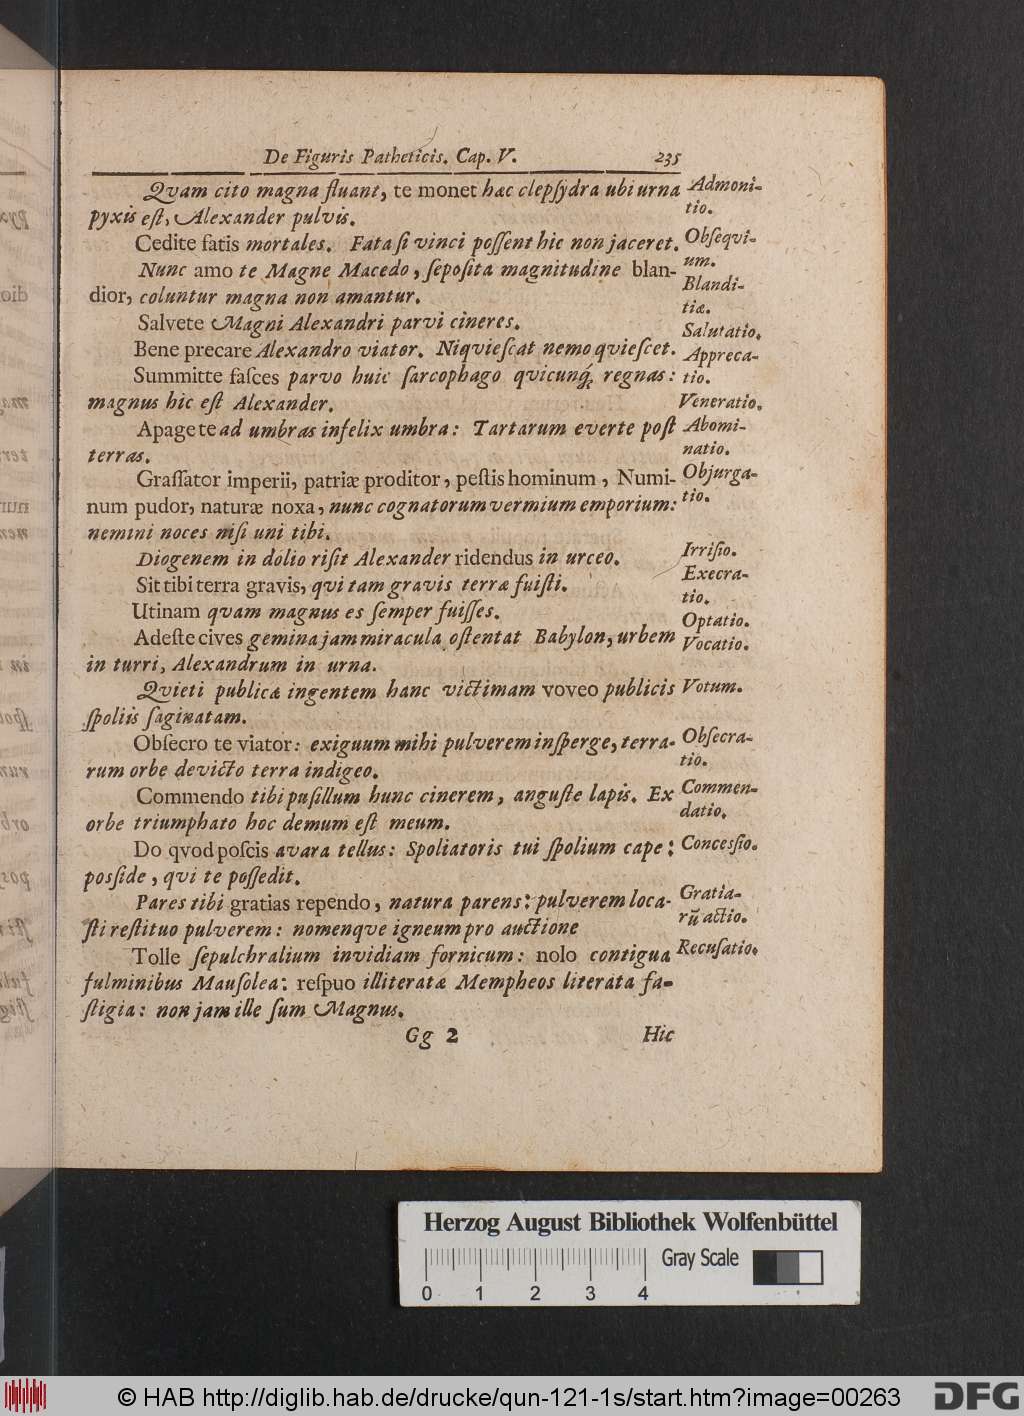 De Figuris Patheticis. Cap. V. 235
Qvam cito magna fluant, te monet hæc clepſydra ubi urna
pyxis eſt, Alexander pulvis.
Admoni-
tio.
Cedite fatis mortales. Fata ſi vinci poſſent hic non jaceret.
Obſeqvi-
um.
Nunc amo te Magne Macedo, ſepoſita magnitudine blan-
dior, coluntur magna non amantur.
Blandi-
tiæ.
Salvete Magni Alexandri parvi cineres.
Salutatio.
Bene precare Alexandro viator. Ni qvieſcat nemo qvieſcet.
Appreca-
tio.
Summitte faſces parvo huic ſarcophago qvicunq́; regnas:
magnus hic eſt Alexander.
Veneratio.
Apage te ad umbras infelix umbra: Tartarum everte poſt
terras.
Abomi-
natio.
Graſſator imperii, patriæ proditor, peſtis hominum, Numi-
num pudor, naturæ noxa, nunc cognatorum vermium emporium:
nemini noces niſi uni tibi.
Objurga-
tio.
Diogenem in dolio riſit Alexander ridendus in urceo.
Irriſio.
Sit tibi terra gravis, qvi tam gravis terræ fuiſti.
Execra-
tio.
Utinam qvam magnus es ſemper fuiſſes.
Optatio.
Adeſte cives gemina jam miracula oſtentat Babylon, urbem
in turri, Alexandrum in urna.
Vocatio.
Qvieti publicæ ingentem hanc victimam voveo publicis
ſpoliis ſaginatam.
Votum.
Obſecro te viator: exiguum mihi pulverem inſperge, terra-
rum orbe devicto terra indigeo.
Obſecra-
tio.
Commendo tibi puſillum hunc cinerem, anguſte lapis. Ex
orbe triumphato hoc demum eſt meum.
Commen-
datio.
Do qvod poſcis avara tellus: Spoliatoris tui ſpolium cape:
posſide, qvi te poſſedit.
Concesſio.
Pares tibi gratias rependo, natura parens: pulverem loca-
ſti reſtituo pulverem: nomenqve igneum pro auctione
Gratia-
rũ actio.
Tolle ſepulchralium invidiam fornicum: nolo contigua
fulminibus Mauſolea: reſpuo illiteratæ Mempheos literata fa-
ſtigia: non jam ille ſum Magnus.
Recuſatio.
Gg 2 Hic
Herzog August Bibliothek Wolfenbüttel
Gray Scale
0 1 2 3 4
© HAB http://diglib.hab.de/drucke/qun-121-1s/start.htm?image=00263
DFG